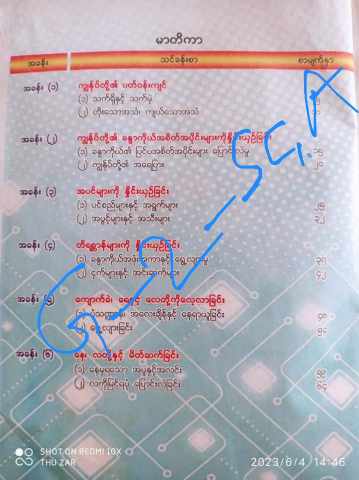 မာတိကာ
အခန်း သင်ခန်းစာ စာမျက်နှာ
အခန်း (၁) ကျွန်ုပ်တို့၏ ပတ်ဝန်းကျင်
(၁) သက်ရှိနှင့် သက်မဲ့
(၂) တိုးသောအသံ၊ ကျယ်သောအသံ
အခန်း (၂) ကျွန်ုပ်တို့၏ ခန္ဓာကိုယ်အစိတ်အပိုင်းများကိုနှိုင်းယှဉ်ခြင်း
(၁) ခန္ဓာကိုယ်၏ ပြင်ပအစိတ်အပိုင်းများ ပြောင်းလဲမှု
(၂) ကျွန်ုပ်တို့၏ အရေပြား
အခန်း (၃) အပင်များကို နှိုင်းယှဉ်ခြင်း
(၁) ပင်စည်များနှင့် အရွက်များ
(၂) အပွင့်များနှင့် အသီးများ
အခန်း (၄) တိရစ္ဆာန်များကို နှိုင်းယှဉ်ခြင်း
(၁) ခန္ဓာကိုယ်အဖုံးအကာနှင့် ရွေ့လျားမှု
(၂) ငှက်များနှင့် အင်းဆက်များ
အခန်း (၅) ကျောက်ခဲ၊ ရေနှင့် လေတို့ကိုလေ့လာခြင်း
(၁) ပုံသဏ္ဌာန်၊ အလေးချိန်နှင့် နေရာယူခြင်း
(၂) ရွေ့လျားခြင်း
အခန်း (၆) နေ၊ လတို့နှင့် မိတ်ဆက်ခြင်း
(၁) နေမှရသော အပူနှင့်အလင်း
(၂) လကိုမြင်ရပုံ ပြောင်းလဲခြင်း
G-2-SC, A
SHOT ON REDMI 10X
THU ZAR
2023/6/4 14:46